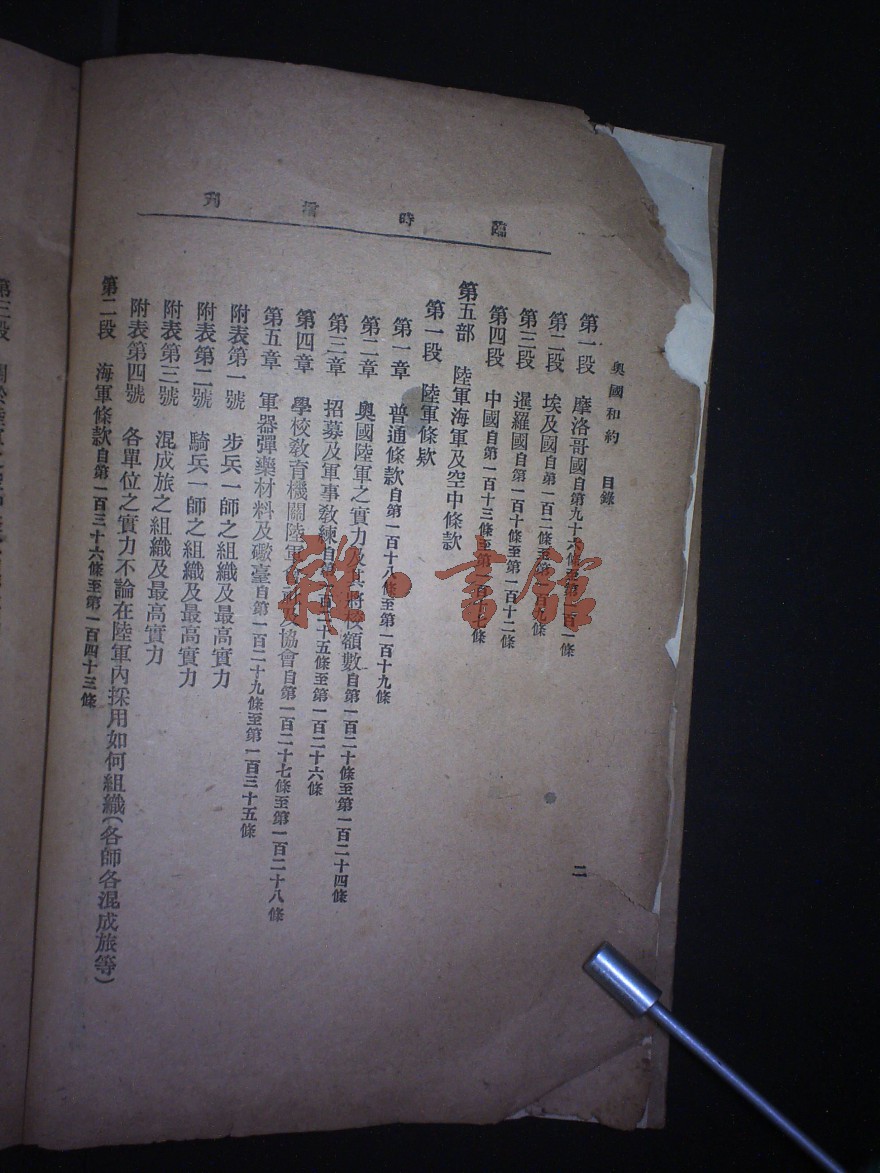 臨時增刊
奧國和約 目錄
二
第一段 摩洛哥國自第九十六條至第一百一條
第二段 埃及國自第一百二條至第一百九條
第三段 暹羅國自第一百十條至第一百十二條
第四段 中國自第一百十三條至第一百十七條
第五部 陸軍海軍及空中條款
第一段 陸軍條欵
第一章 普通條款自第一百十八條至第一百十九條
第二章 奧國陸軍之實力及其將校額數自第一百二十條至第一百二十四條
第三章 招募及軍事教練自第一百二十五條至第一百二十六條
第四章 學校教育機關陸軍會社及協會自第一百二十七條至第一百二十八條
第五章 軍器彈藥材料及礮臺自第一百二十九條至第一百三十五條
附表第一號 步兵一師之組織及最高實力
附表第二號 騎兵一師之組織及最高實力
附表第三號 混成旅之組織及最高實力
附表第四號 各單位之實力不論在陸軍內採用如何組織(各師各混成旅等)
第二段 海軍條款自第一百三十六條至第一百四十三條
第三段
雜·書館